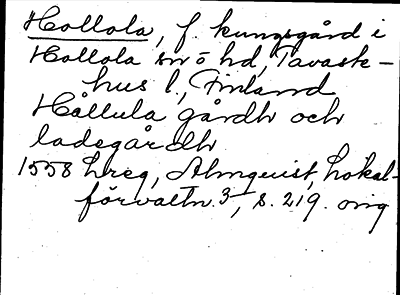 Hollola, f. kungsgård i
Hollola sn o hd, Tavaste-
hus l., Finland
Hållula gårdh och
ladegårdh
1558 hreg, Almquist, Lokal-
förvaltn. 3, s. 219. orig